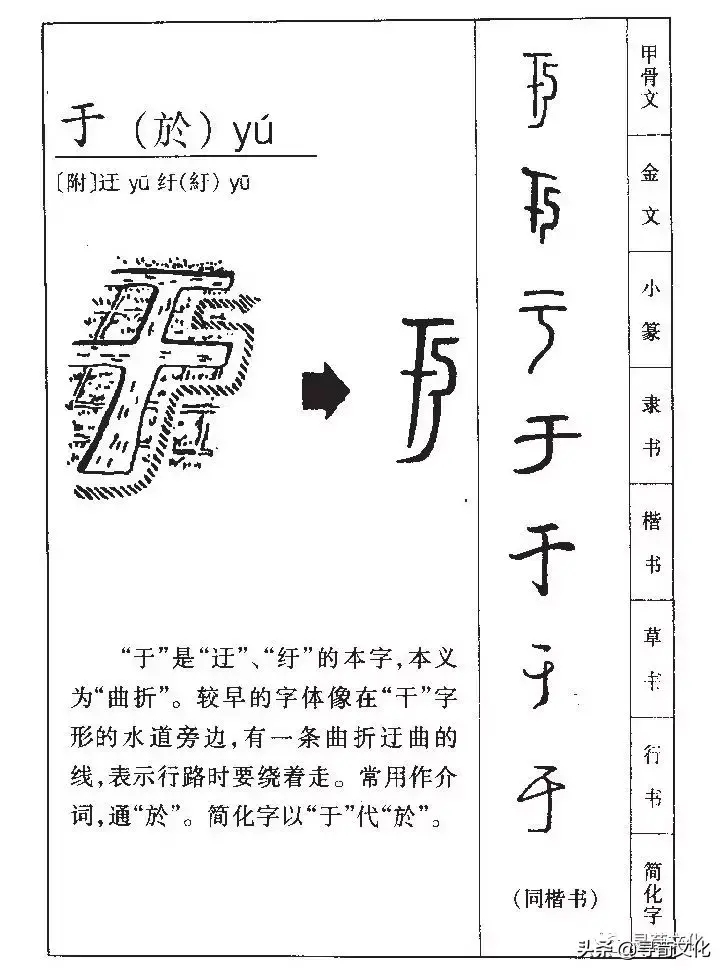 于（於）yú
〔附〕迂 yū 纡(紆) yū
“于”是“迂”、“纡”的本字，本义
为“曲折”。较早的字体像在“干”字
形的水道旁边，有一条曲折迂曲的
线，表示行路时要绕着走。常用作介
词，通“於”。简化字以“于”代“於”。
甲骨文
金文
小篆
于
隶书
于
楷书
于
草书
于
行书
(同楷书)
简化字
头条 @ 文化